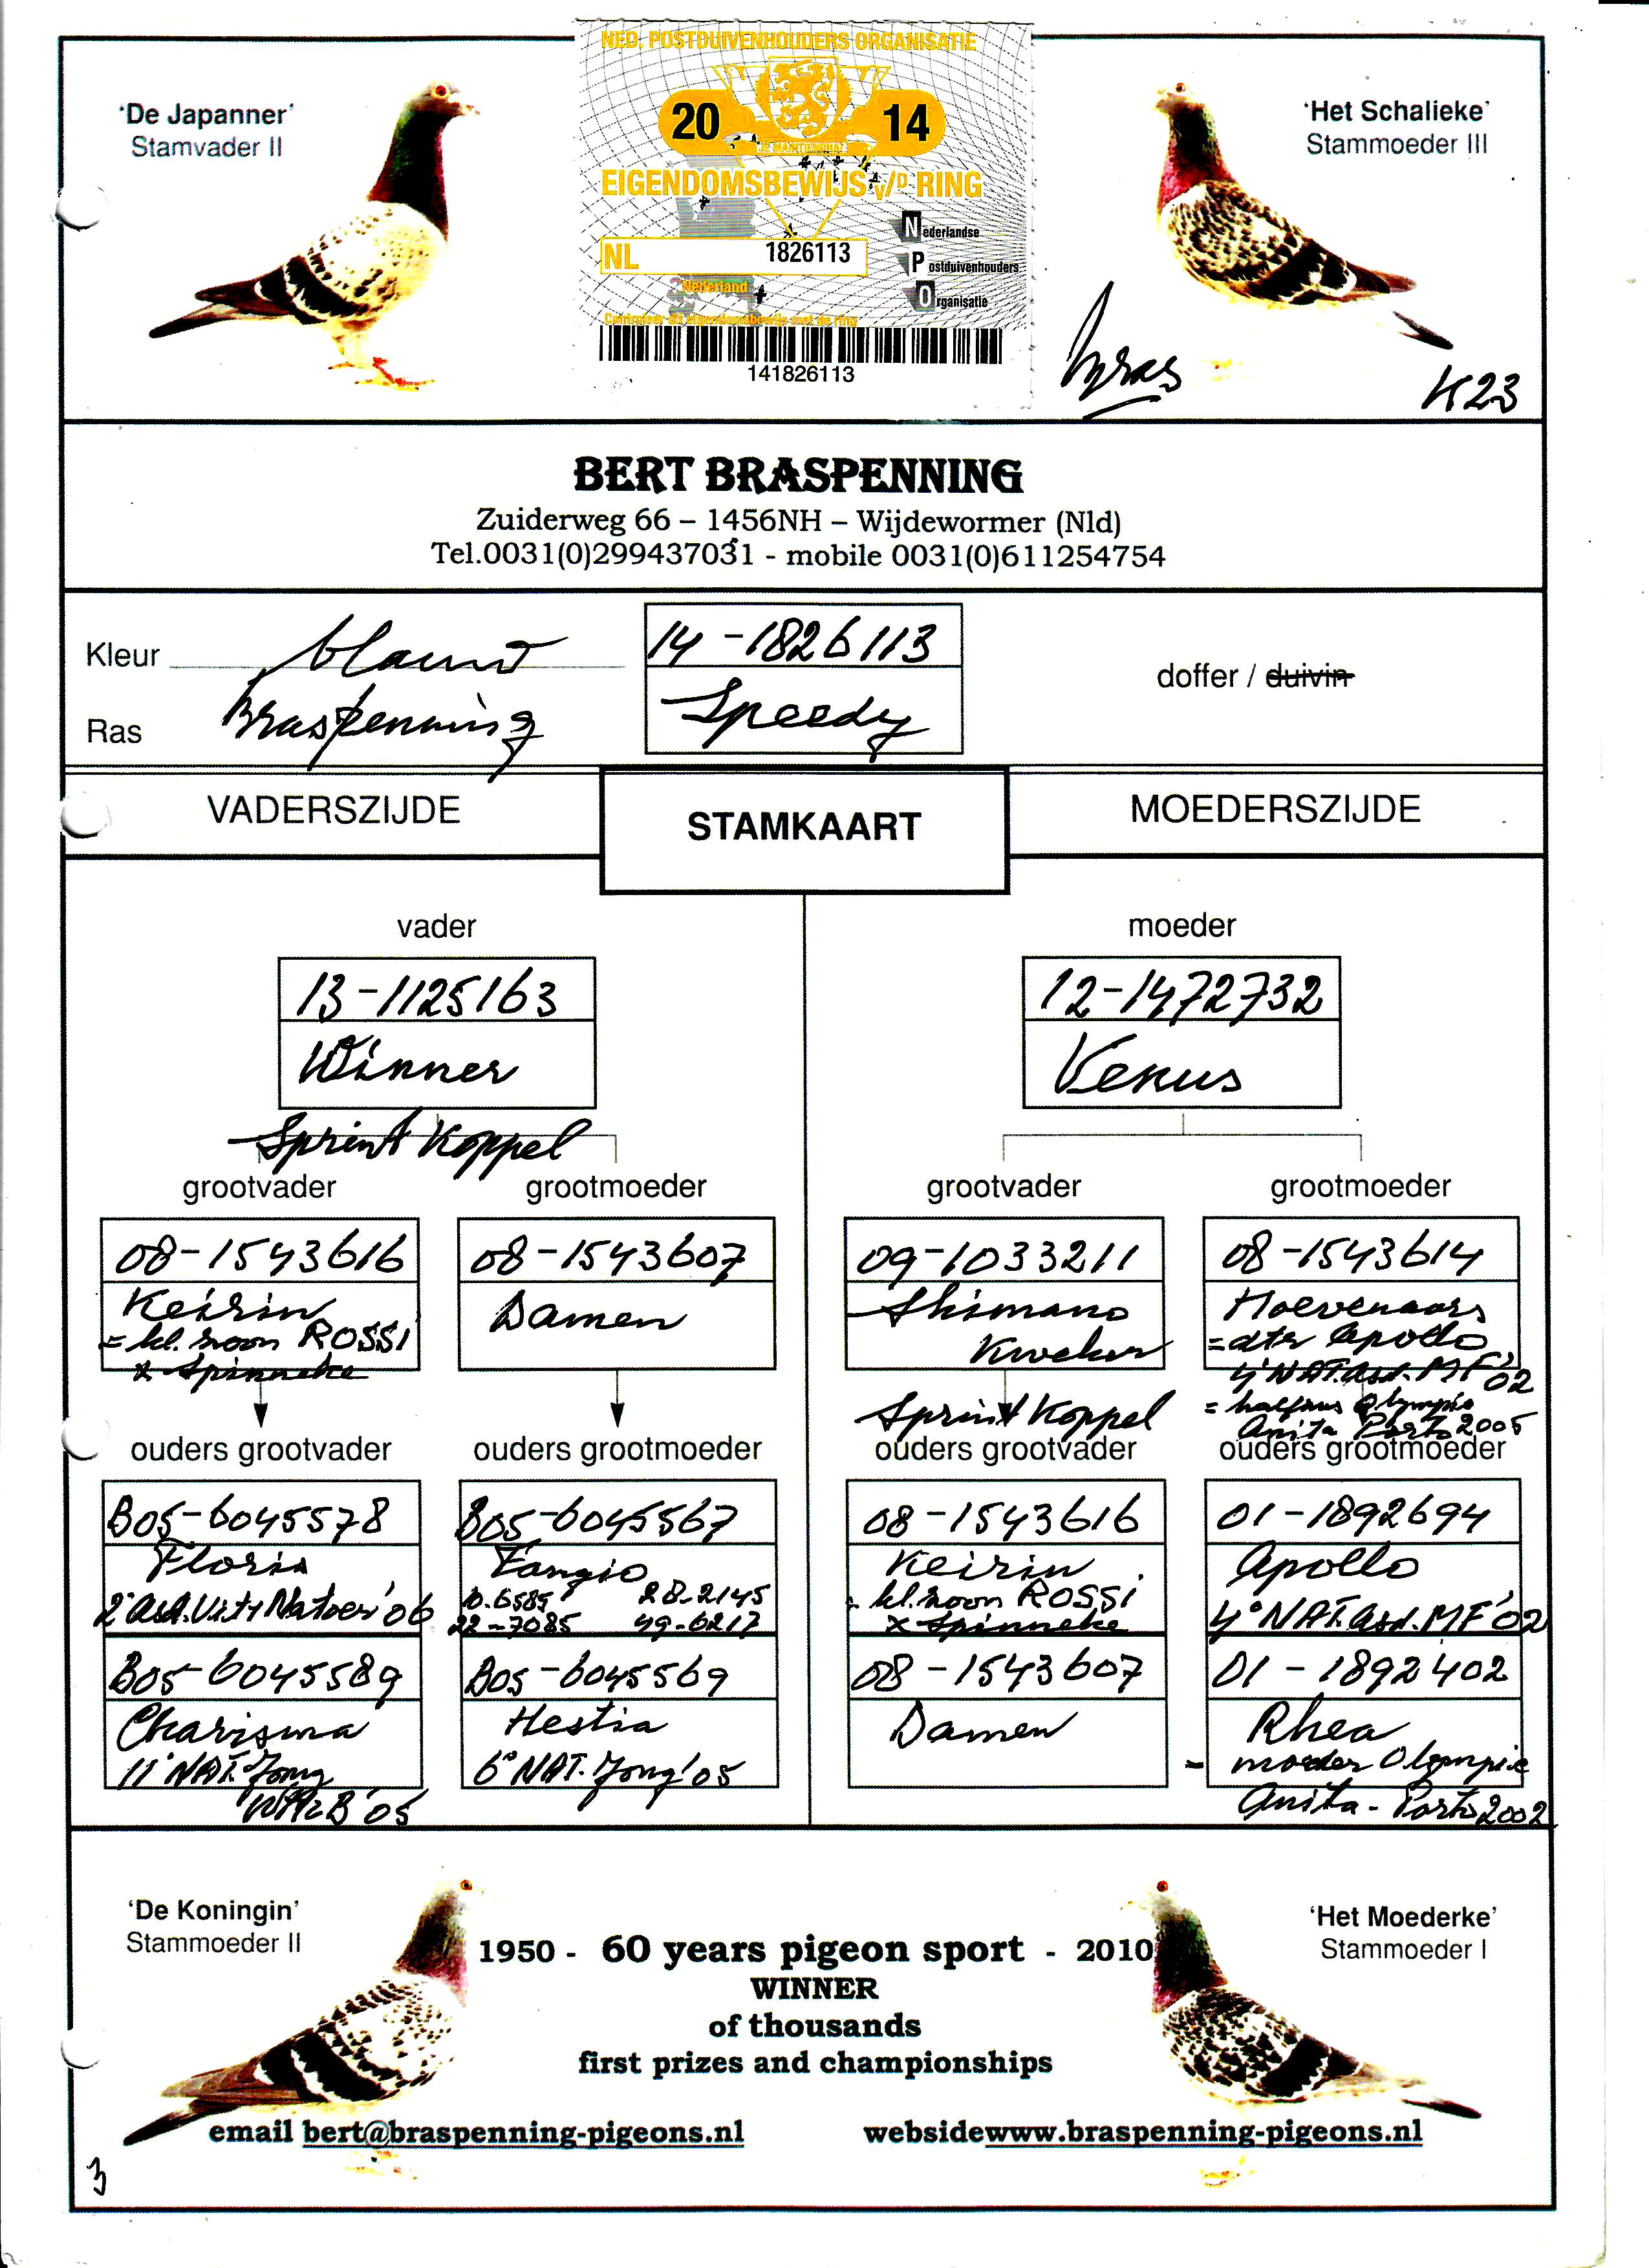 NED. POSTDUIVENHOUDERS ORGANISATIE
'De Japanner'
Stamvader II
20 14
JE MAINTIENDRAI
'Het Schalieke'
Stammoeder III
EIGENDOMSBEWIJS v/D RING
Nederlandse
NL 1826113
Postduivenhouders
Nederland
Organisatie
Controleer dit eigendomsbewijs met de ring
141826113
Bras
K23
BERT BRASPENNING
Zuiderweg 66 – 1456NH – Wijdewormer (Nld)
Tel.0031(0)299437031 - mobile 0031(0)611254754
Kleur blauw
14-1826113
doffer / duivin
Ras Braspenning
Speedy
VADERSZIJDE
STAMKAART
MOEDERSZIJDE
vader
moeder
13-1125163
12-1472732
Winner
Venus
Sprint Koppel
grootvader
grootmoeder
grootvader
grootmoeder
08-1543616
08-1543607
09-1033211
08-1543614
Keirin
= kl. zoon ROSSI
x Spinneke
Damen
Shimano
Kweker
Hoevenaars
= dtr Apollo
4° NAT. asd. MF '02
= halfzus Olympic
Anita Porto 2005
Sprint Koppel
ouders grootvader
ouders grootmoeder
ouders grootvader
ouders grootmoeder
B05-6045578
B05-6045567
08-1543616
01-1892694
Floris
2° Asd. Vit. Natoer '06
Fangio
10-6585 28-2145
22-7085 49-6217
Keirin
= kl. zoon ROSSI
x Spinneke
Apollo
4° NAT. asd. MF '02
B05-6045589
B05-6045569
08-1543607
01-1892402
Charisma
11° NAT. Jong
'05
Hestia
6° NAT. Jong '05
Damen
Rhea
= moeder Olympic
Anita - Porto 2002
'De Koningin'
Stammoeder II
'Het Moederke'
Stammoeder I
1950 - 60 years pigeon sport - 2010
WINNER
of thousands
first prizes and championships
email bert@braspenning-pigeons.nl
websidewww.braspenning-pigeons.nl
3